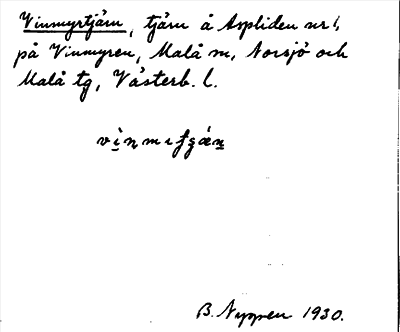 Vinmyrtjärn, tjärn å Aspliden nr 1,
på Vinmyren, Malå m, Norsjö och
Malå tg, Västerb. l.
B. Nyppen 1930.